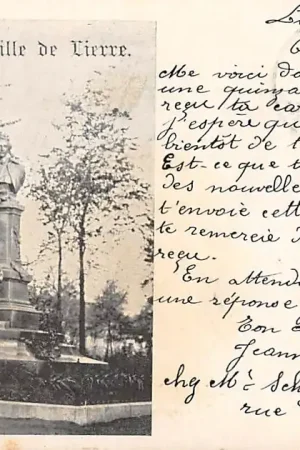 ille de Lierre.
Me voici d
une quinz
reçu ta ca
j'espère qu
bientot de t
Est-ce que t
des nouvelle
t'envoie cett
te remercie
reçu.
En attend
une réponse
Ton
Jeann
chez Mr Sch
rue